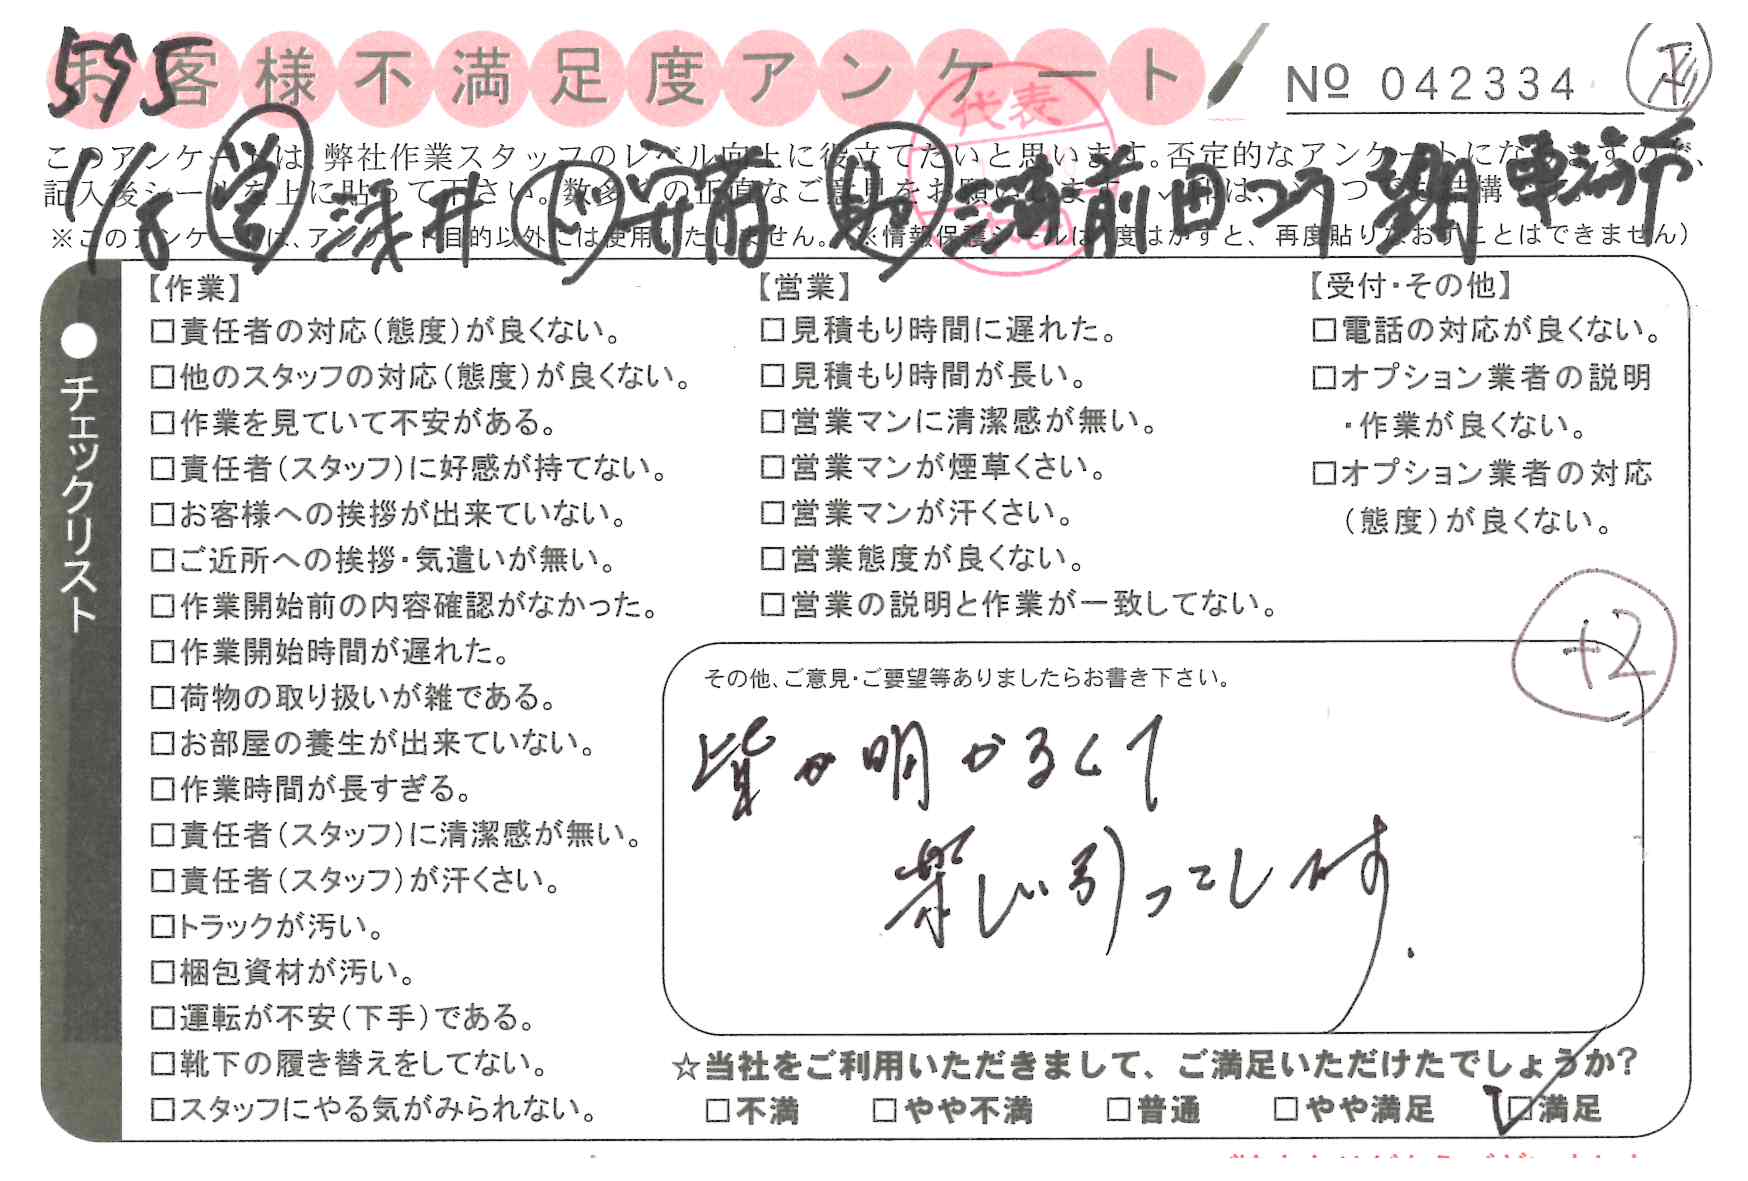 595
お客様不満足度アンケート
№ 042334
このアンケートは、弊社作業スタッフのレベル向上に役立てたいと思います。否定的なアンケートになりますので、
記入後シールを上に貼って下さい。数多くの正直なご意見をお願いします
※このアンケートは、アンケート目的以外には使用いたしません。(※情報保護シールは一度はがすと、再度貼りなおすことはできません)
代表
1/8 営 浅井 ド 守府 助 前田
チェックリスト
【作業】
□責任者の対応(態度)が良くない。
□他のスタッフの対応(態度)が良くない。
□作業を見ていて不安がある。
□責任者(スタッフ)に好感が持てない。
□お客様への挨拶が出来ていない。
□ご近所への挨拶・気遣いが無い。
□作業開始前の内容確認がなかった。
□作業開始時間が遅れた。
□荷物の取り扱いが雑である。
□お部屋の養生が出来ていない。
□作業時間が長すぎる。
□責任者(スタッフ)に清潔感が無い。
□責任者(スタッフ)が汗くさい。
□トラックが汚い。
□梱包資材が汚い。
□運転が不安(下手)である。
□靴下の履き替えをしてない。
□スタッフにやる気がみられない。
【営業】
□見積もり時間に遅れた。
□見積もり時間が長い。
□営業マンに清潔感が無い。
□営業マンが煙草くさい。
□営業マンが汗くさい。
□営業態度が良くない。
□営業の説明と作業が一致してない。
【受付・その他】
□電話の対応が良くない。
□オプション業者の説明
・作業が良くない。
□オプション業者の対応
(態度)が良くない。
+2
その他、ご意見・ご要望等ありましたらお書き下さい。
皆が明かるくて
楽しい引っこしです.
☆当社をご利用いただきまして、ご満足いただけたでしょうか?
□不満 □やや不満 □普通 □やや満足 □満足